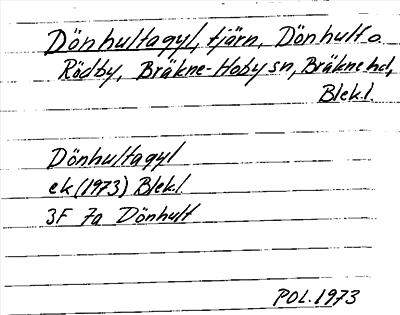 Dönhultagyl, tjärn, Dönhult o
Rödby, Bräkne-Hoby sn, Bräkne hd,
Blek.l.
Dönhultagyl
ek (1973) Blek.l
3F 7a Dönhult
POL. 1973